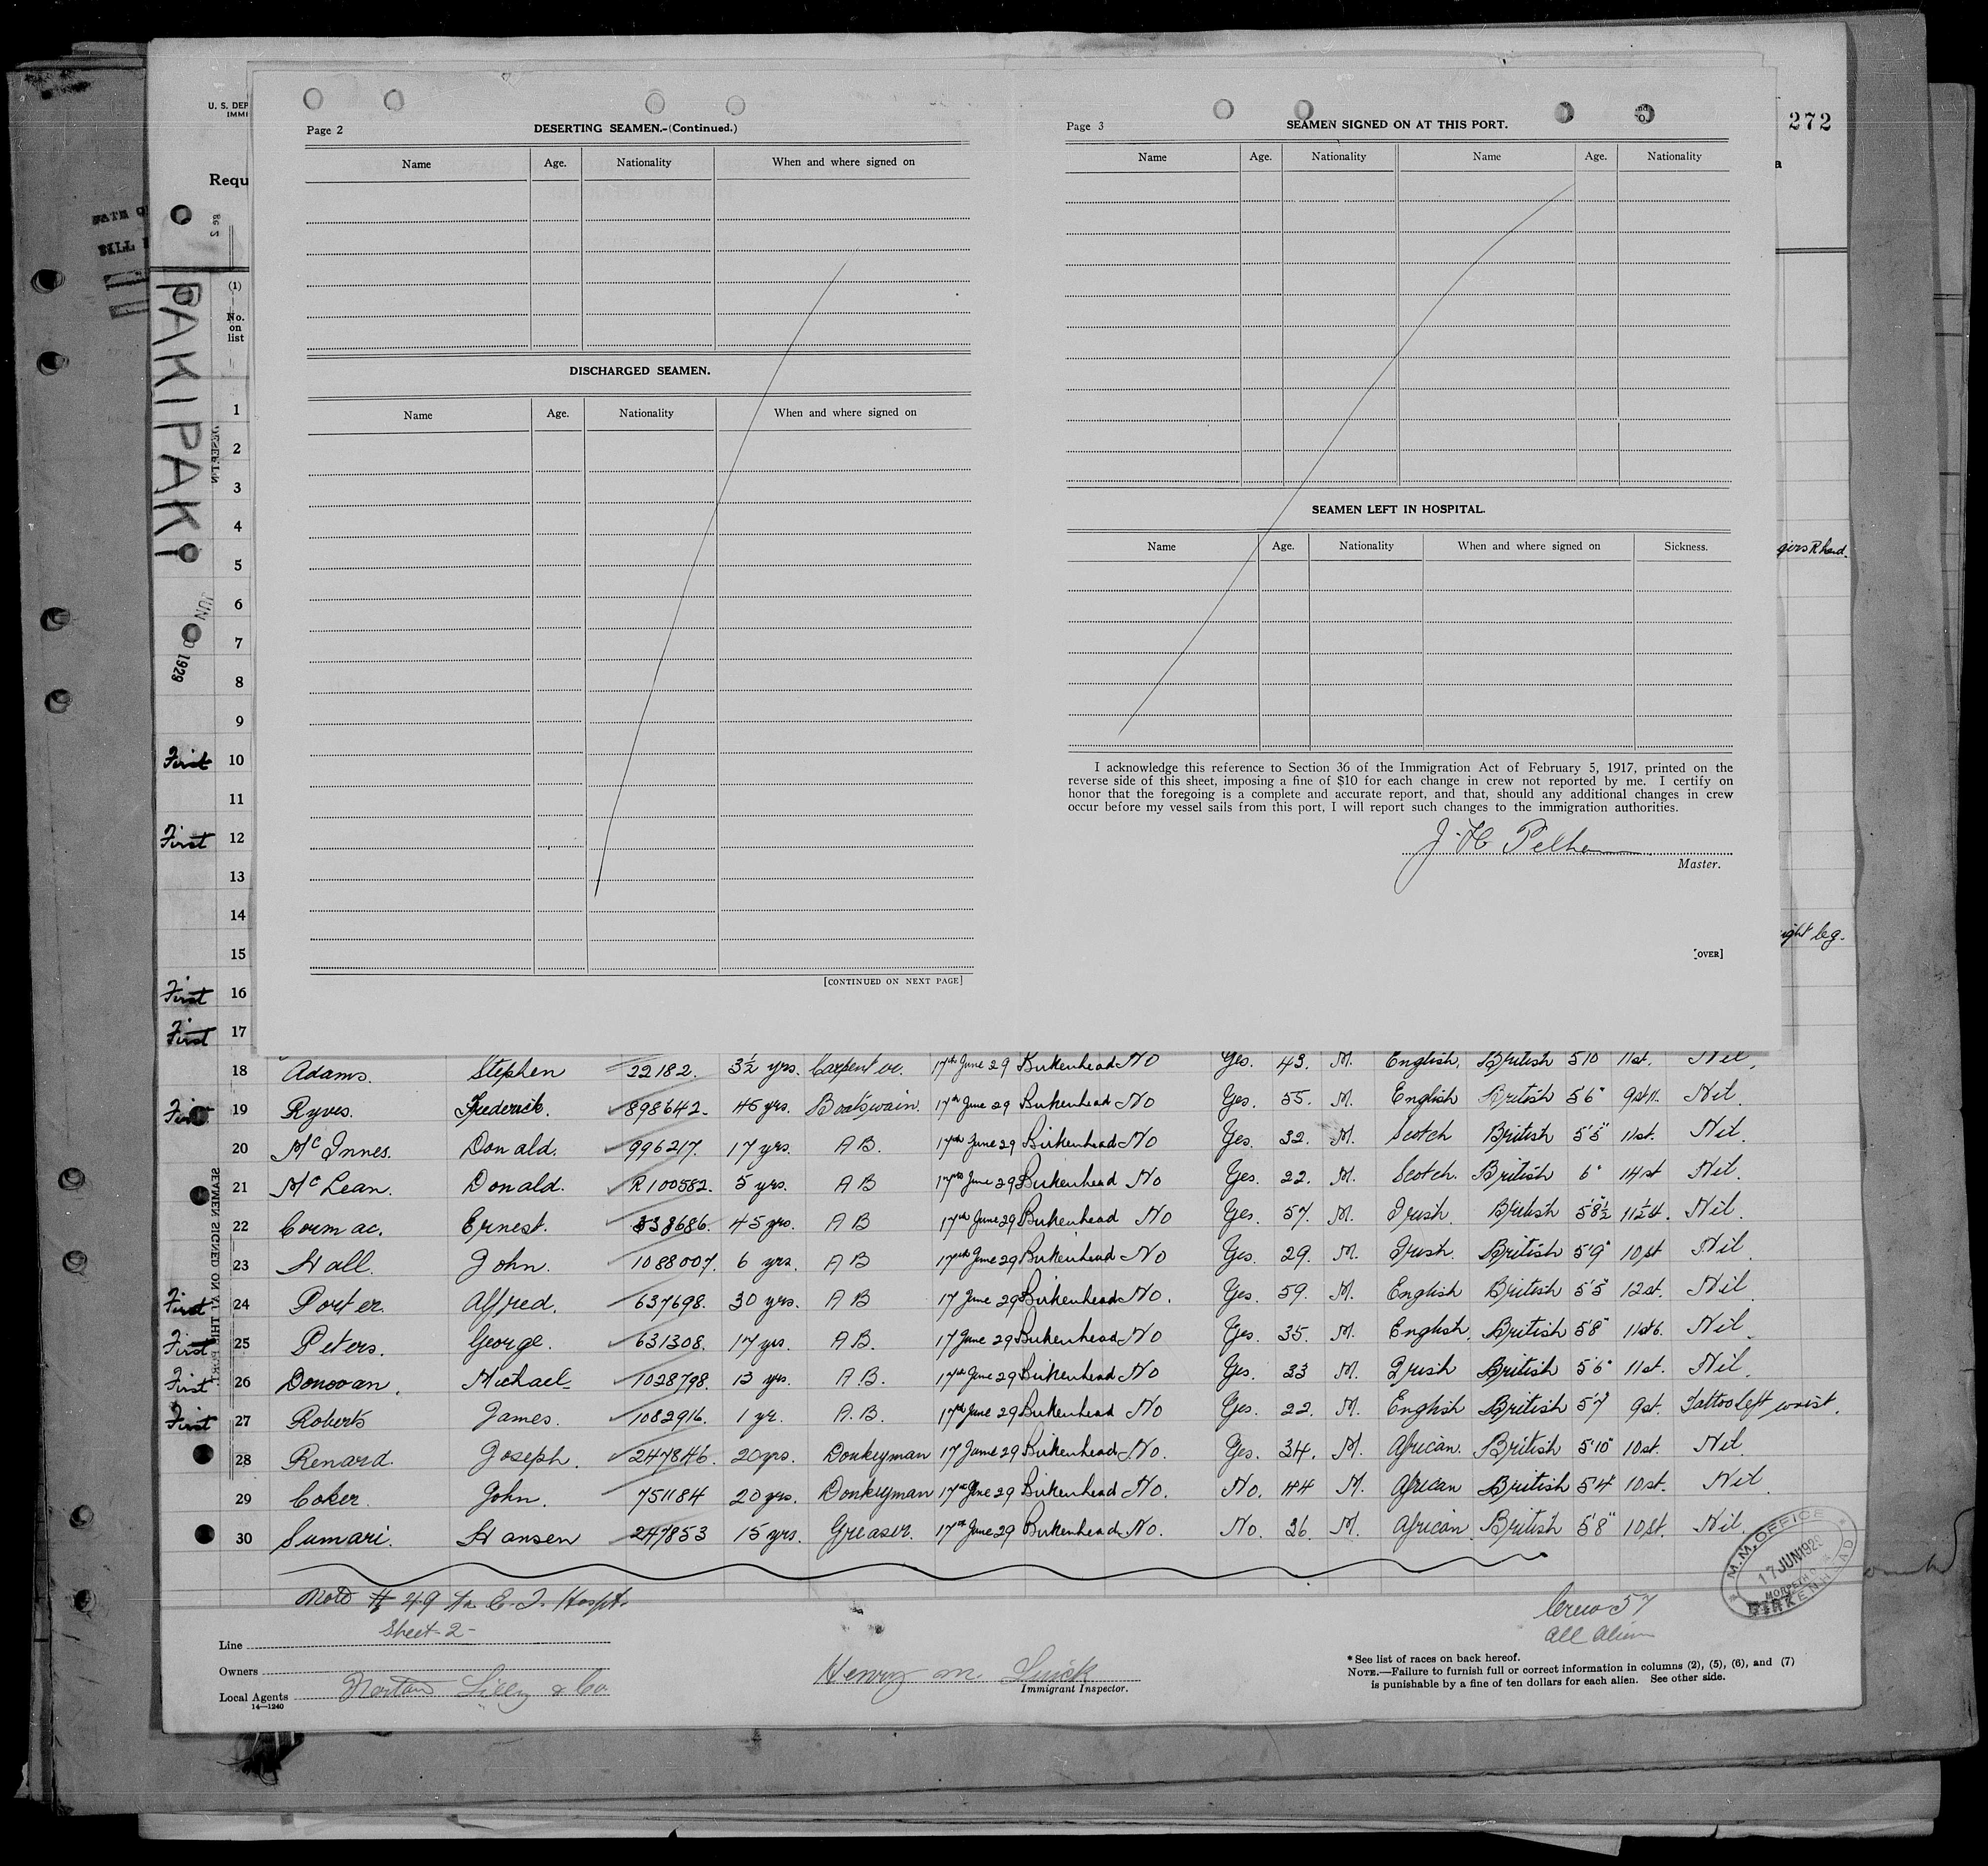 U. S. DEP
IMMI
Requ
272
BILL
PAKIPAKI
JUN 1929
Page 2
DESERTING SEAMEN.-(Continued.)
Name Age. Nationality When and where signed on
DISCHARGED SEAMEN.
Name Age. Nationality When and where signed on
[CONTINUED ON NEXT PAGE]
Page 3
SEAMEN SIGNED ON AT THIS PORT.
Name Age. Nationality Name Age. Nationality
SEAMEN LEFT IN HOSPITAL.
Name Age. Nationality When and where signed on Sickness.
I acknowledge this reference to Section 36 of the Immigration Act of February 5, 1917, printed on the
reverse side of this sheet, imposing a fine of $10 for each change in crew not reported by me. I certify on
honor that the foregoing is a complete and accurate report, and that, should any additional changes in crew
occur before my vessel sails from this port, I will report such changes to the immigration authorities.
Master.
[OVER]
(1)
No.
on
list
1
2
3
4
5
gers R hand.
6
7
8
9
First 10
11
First 12
13
14
15
ight leg.
First 16
First 17
18 Adams. Stephen 22182. 3½ yrs. Carpenter. 17th June 29 Birkenhead No Yes. 43. M. English. British 5'10 11st. Nil.
First 19 Ryves. Frederick. 898642. 45 yrs. Boatswain. 17th June 29 Birkenhead No Yes. 55. M. English British 5'6" 9st11. Nil.
20 McInnes. Donald. 996217. 17 yrs. AB. 17th June 29 Birkenhead No Yes. 32. M. Scotch British 5'5" 11st. Nil.
21 McLean. Donald. R100582. 5 yrs. AB 17th June 29 Birkenhead No Yes. 22. M. Scotch. British 6" 14st Nil.
22 Cormac. Ernest. 838686. 45 yrs. AB 17th June 29 Birkenhead No Yes. 57. M. Irish. British 5'8½ 11½st. Nil.
23 Hall. John. 1088007. 6 yrs. AB 17th June 29 Birkenhead No Yes. 29. M. Irish. British 5'9" 10st Nil
First 24 Porter. Alfred. 637698. 30 yrs. AB 17 June 29 Birkenhead No. Yes. 59. M. English British 5'5" 12st. Nil
First 25 Peters. George. 631308. 17 yrs. AB. 17 June 29 Birkenhead No Yes. 35. M. English. British 5'8" 11st6. Nil
First 26 Donovan. Michael 1028798. 13 yrs. A.B. 17th June 29 Birkenhead No Yes. 33 M. Irish British 5'6" 11st. Nil.
First 27 Roberts James. 1082916. 1 yr. A.B. 17th June 29 Birkenhead No Yes. 22. M. English British 5'7 9st. Tattoo left wrist.
28 Renard. Joseph. 247846. 20 yrs. Donkeyman 17 June 29 Birkenhead No. Yes. 34. M. African. British 5'10" 10st. Nil
29 Coker. John. 751184 20 yrs. Donkeyman 17th June 29 Birkenhead No. No. 44 M. African British 5'4 10st. Nil
30 Sumari. Hansen 247853 15 yrs. Greaser. 17th June 29 Birkenhead No. No. 26. M. African. British 5'8" 10st. Nil.
SEAMEN SIGNED ON AT THIS PORT.
Note # 49 In E. I. Hospt.
Sheet-2-
Line
Owners
Local Agents Norton Lilly & Co.
14—1240
Henry M.
Immigrant Inspector.
Crew 57
all alien
*See list of races on back hereof.
NOTE.—Failure to furnish full or correct information in columns (2), (5), (6), and (7)
is punishable by a fine of ten dollars for each alien. See other side.
M.M. OFFICE
17 JUN 1929
BIRKENHEAD